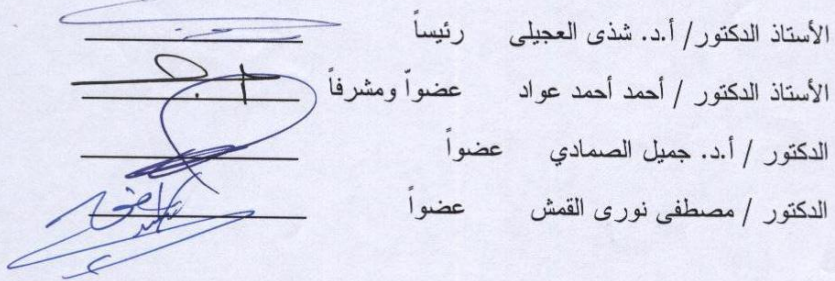 الأستاذ الدكتور/ أ.د. شذى العجيلى رئيساً
الأستاذ الدكتور / أحمد أحمد عواد عضواً ومشرفاً
الدكتور / أ.د. جميل الصمادي عضواً
الدكتور / مصطفى نورى القمش عضواً